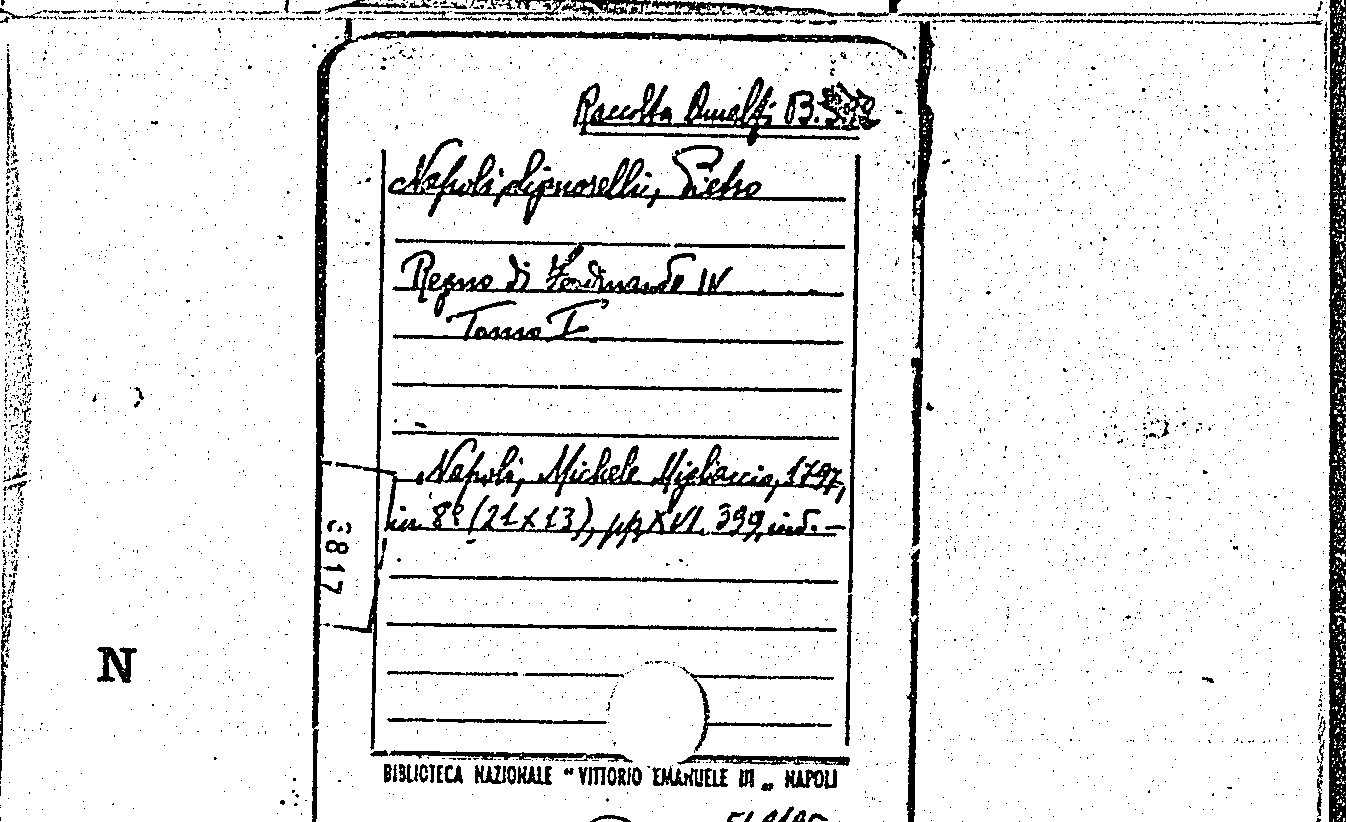 Raccolta Amalfi B.
Napoli Signorelli, Pietro
Regno di Ferdinando IV
Tomo I
Napoli, Michele Migliaccio, 1797,
in 8º (21 x 13), pp. XVI. 399, ind. —
3817
N
BIBLIOTECA NAZIONALE "VITTORIO EMANUELE III„ NAPOLI